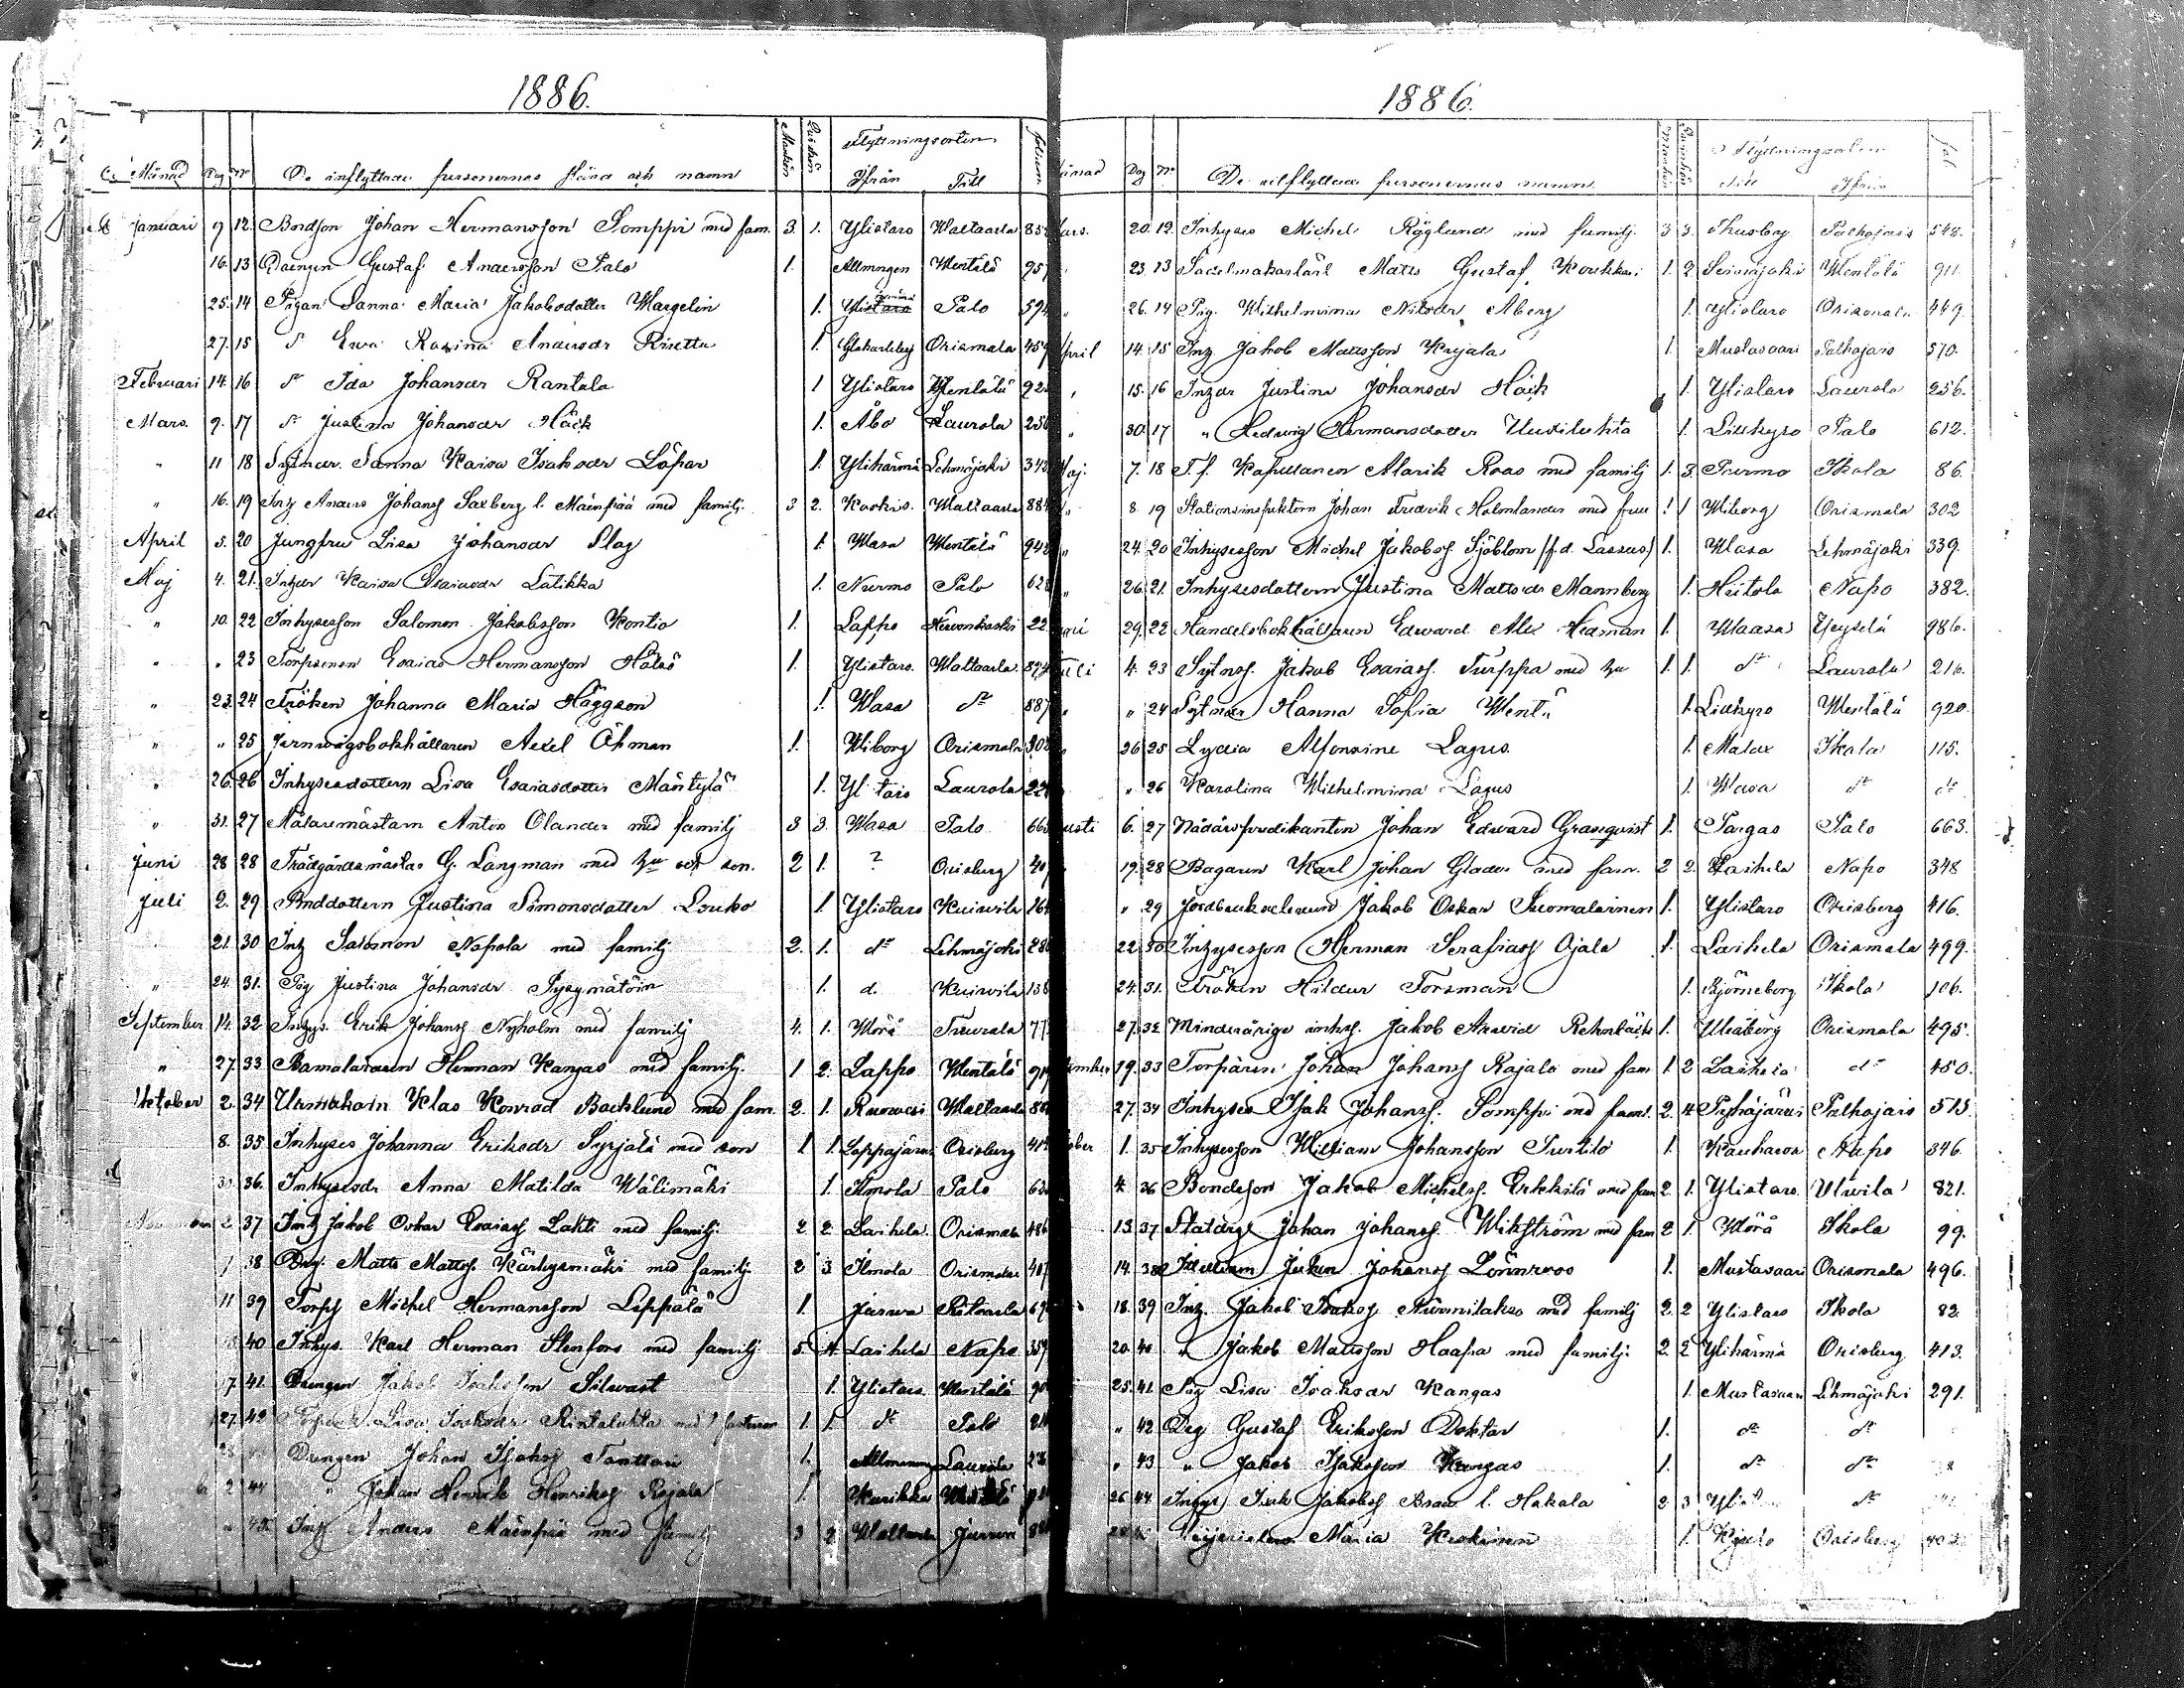 1886.
Månad Dag No De inflyttade personernas stånd och namn Mankön Qvinkön Flyttningsorten Ifrån Till folium
Januari 9 12. Bondson Johan Hermansson Somppi med fam. 3. 1. Ylistaro Waltaarla 85
16. 13 Drengen Gustaf Andersson Palo 1. Allmogen Mentälä 95
25. 14 Pigan Sanna Maria Jakobsdotter Margelin 1. Ylistaro Palo 594
27. 15 d:o Ewa Rosina Andersdr Risetta 1. Glakarleby Orismala 457
Februari 14 16 d:o Ida Johansdr Rantala 1 Ylistaro Mentälä 92
Mars. 9. 17 d:o Justina Johansdr Häck 1. Åbo Laurola 256
" 11 18 Sytnsdr. Sanna Kaisa Isaksdr Löpar 1. Ylihärmä Lehmäjoki 34
" 16. 19 Inhy Anders Johans Saxberg l. Mäenpää med familj. 3 2. Waltaarla 884
April 5. 20 Jungfru Lisa Johansdr Slag 1. Wasa Mentälä 94
Maj 4. 21. Inhdr Kaisa Esaiasdr Latikka 1. Nurmo Palo 62
" 10. 22 Inhysesson Salomon Jakobsson Kontio 1. Lappo Kirvonkoski 22
" " 23 Torparen Esaias Hermansson Hölsö 1. Ylistaro. Waltaarla. 874
" 23. 24 Fröken Johanna Maria Häggson 1. Wasa d:o 887
" " 25 Jernvägsbokhållaren Axel Öhman 1. Wiborg Orismala 30
" 26. 26 Inhysesdottern Lisa Esaiasdotter Mäntylä 1. Yl taro Laurola 22
" 31. 27 Målaremästarn Anton Olander med familj 3 3. Wasa Palo 66
Juni 28 28 Trädgårdsmästar G. Långman med hu och son. 2 1. ? Orisberg 40
Juli 2. 29 Bnddottern Justina Simonsdotter Louko 1. Ylistaro Kuiwila 16
21. 30 Inh Salomon Napola med familj 2. 1. d:o Lehmäjoki 28
" 24. 31. Pig Justina Johansdr 1. d. Kuiwila 158
September 14. 32 Inhys. Erik Johans Nyholm med familj 4. 1. Wörå 77
" 27. 33 Herman Kangas med familj. 1 2. Lappo Mentälä 91
Oktober 2. 34 Urmakarn Klas Konrad Backlund med fam. 2. 1. Ruovesi Waltaarla 88
8. 35 Inhyses Johanna Eriksdr Syrjälä med son 1 1. Lappajärvi Orisberg 41
36. Inhysesdr Anna Matilda Wälimäki 1. Ilmola Palo 62
November 2. 37 Inh Jakob Oskar Esaiass Lahti med familj. 2 2. Laihela. Orismala 486
1 38 Drg. Matts Matts Kärkysmäki med familj 2 3 Ilmola Orismala 487
11 39 Torps Michel Hermansson Leppälä 1. Jurva 69
40 Inhys. Karl Herman Stenfors med familj 5. 4 Laihela Napo 359
17 41. Drengen Jakob Isaksson Silwast 1. Ylistaro Mentälä 90
27. 42 Lisa Isaksdr Rintaluhta med 1 1. 1. d:o Palo
Drengen Johan Isaks Tanttari 1. Laurola
2 44 " Johan Henrik Henriks Rajala 1. Kurikka
" 45. Inh Anders Mäenpää med familj 3 2. Waltaarla Jurva
1886.
Månad Dag No De utflyttade personernas namn. Mankön Qvinkön Flyttningsorten Till Ifrån fol
Mars. 20. 12. Inhyses Michel Röglund med familj. 3 3. Thusby Palhojais 548.
23. 13 Sadelmakarlärl Matts Gustaf Koukkari 1. 2. Seinäjoki Mentälä 911.
" 26. 14 Pig. Wilhelmina Nilsdr Åberg 1. Ylistaro Orismala 449.
April 14. 15 Inh. Jakob Mattsson Karjala 1. Mustasaari Palhojais 570.
" 15. 16 Inhdr Justina Johansdr Häck 1. Ylistaro Laurola 256.
" 30. 17 " Hedwig Hermansdotter Uusiluhta 1. Lillkyro Palo 612.
Maj. 7. 18 T.f. Kapellanen Alarik Roos med familj 1. 3. Purmo Ikola 86.
" 8. 19 Stationsinspektorn Johan Fredrik Holmlander med fru 1 1 Wiborg Orismala 302
" 24. 20 Inhysesson Michel Jakobss Sjöblom (f.d. Lassus) 1. Wasa Lehmäjoki 339.
" 26. 21. Inhysesdottern Justina Mattsdr Mannberg 1. Hiitola Napo 382.
Juni 29. 22 Handelsbokhållaren Edward Alex Hedman 1. Waasa 986.
Juli 4. 23 Sytns. Jakob Esaiass. Turppa med hu 1. 1. d:o Laurola 216.
" " 24 Sytnsdr Hanna Sofia Ment 1. Lillkyro Mentälä 920.
26 25 Lydia Alfonsine Lagus. 1. Malax Ikola 115.
" 26 Karolina Wilhelmina Lagus 1. Wasa d:o d:o
Augusti 6. 27 Nådårspredikanten Johan Edward Grasqvist 1. Pargas Palo 663.
19. 28 Bagaren Karl Johan Glader med fam. 2 2. Laihela Napo 348
" 29 Jordbrukseleven Jakob Oskar Suomalainen 1. Ylistaro Orisberg 416.
22. 30 Inhysesson Herman Serafiass Ojala 1. Laihela Orismala 499.
24. 31. Fröken Hildur Forsman 1. Björneborg Ikola 106.
27. 32 Minderårige inhs. Jakob Arwid 1. Uleåborg Orismala 495.
19. 33 Torparen Johan Johans Rajala med fam 1 2 Laihela d:o 450.
27. 34 Inhyses Isak Johans. Somppi med fam. 2. 4 Pyhäjärvi Palhojais 515.
1. 35 Inhysesson William Johansson Purtilo 1. Kauhava Napo 346.
4. 36 Bondeson Jakob Michels. Erkkilä med fam 2. 1. Ylistaro. Ulwila 821.
13. 37 Statdrg Johan Johans. Wikström med fam 2 1. Wörå Ikola 99.
14. 38 Johan Johans Lönnroos 1. Mustasaari Orismala 496.
18. 39 Inh. Jakob Isaks med familj 2. 2 Ylistaro Ikola 82.
20. 40 " Jakob Mattsson Haapa med familj. 2. 2 Ylihärmä Orisberg 413.
25. 41. Pig Lisa Isaksdr Kangas 1. Mustasaari Lehmäjoki 291.
" 42 Drg Gustaf Eriksson Doktar 1. d:o d:o
" 43 " Jakob Isaksson Kangas 1. d:o d:o
26. 44 Inhys Isak Jakobs l. Hakala 2. 3 Ylist d:o
Maria Keskinen 1. Orisberg 403.